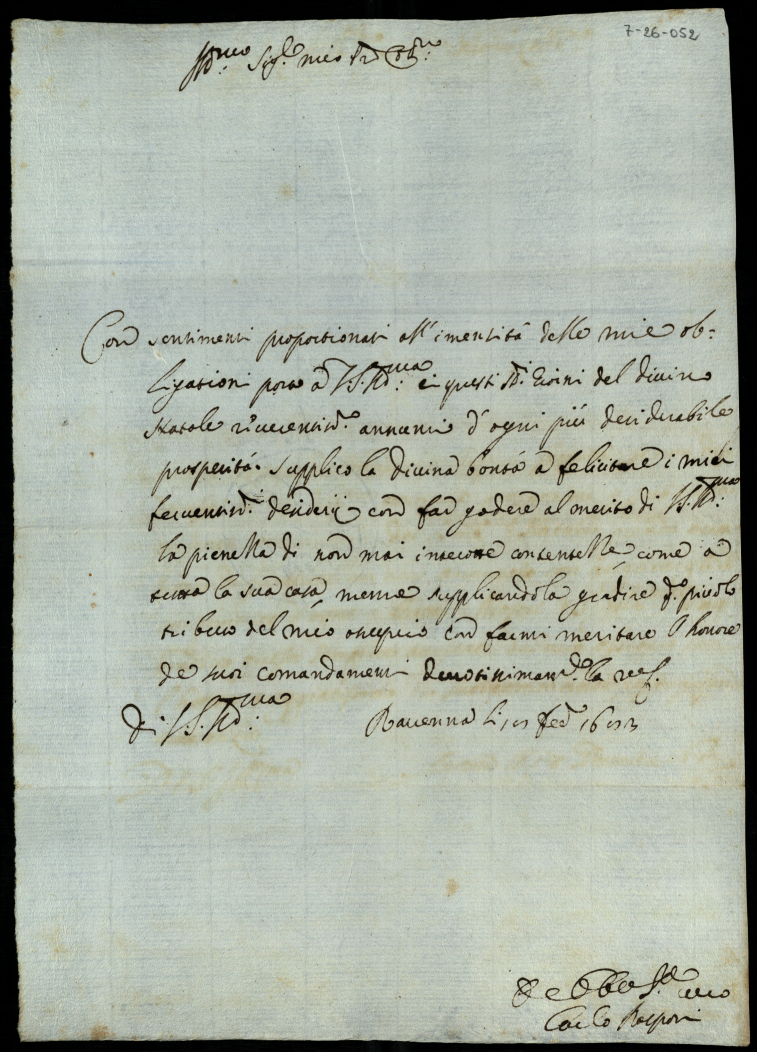 7-26-052
Ill.mo Sig.r mio P.ron Oss.mo
Con sentimenti proportionati all'imensità delle mie ob=
ligationi porto à VS. Ill.ma in questi S.ti Giorni del divino
Natale riverentis.i annunci d'ogni più desiderabile
prosperità. Supplico la divina bontà à felicitare i miei
ferventis.i desiderij con far godere al merito di VS. Ill.ma
la pienezza di non mai interotte contentezze, come à
tutta la sua casa, mentre supplicandola gradire q.to picolo
tributo del mio ossequio con farmi meritare l'honore
de suoi comandamenti devotissimam.te la river.
Di VS. Ill.ma Ravenna li
Carlo Rasponi